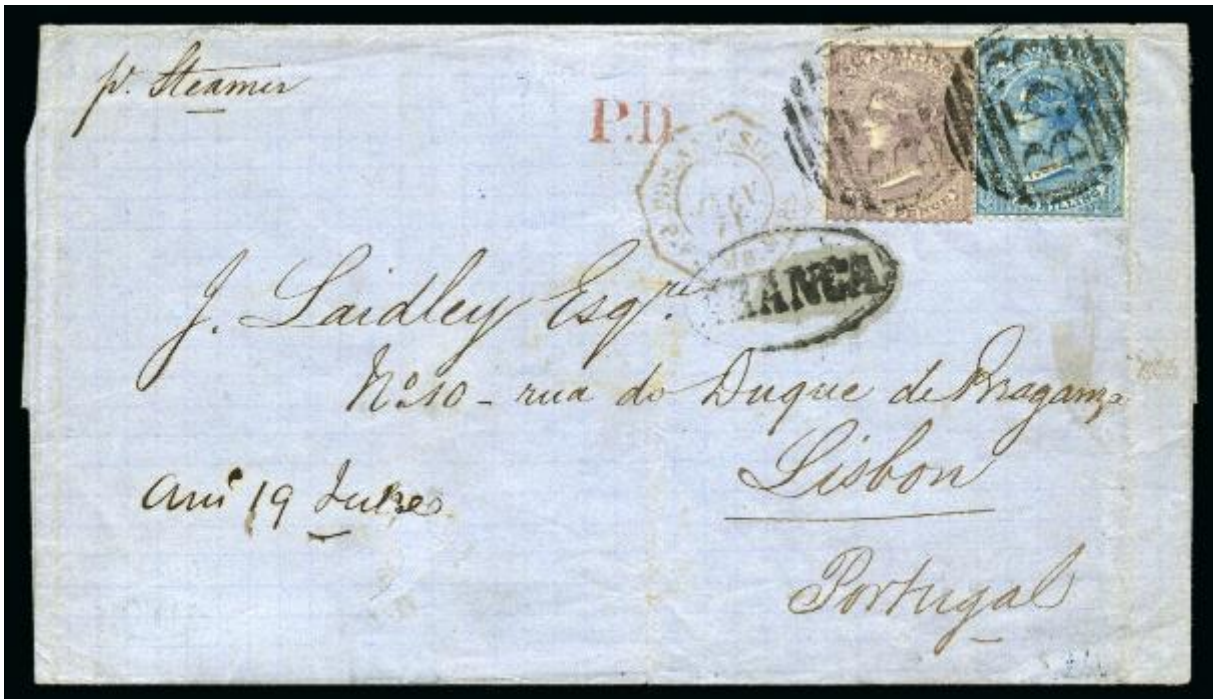 pr. Steamer
P.D.
B53
B53
FRANCA
J. Laidley Esqre
No. 10 - rua do Duque de Braganza
Lisbon
Portugal
19